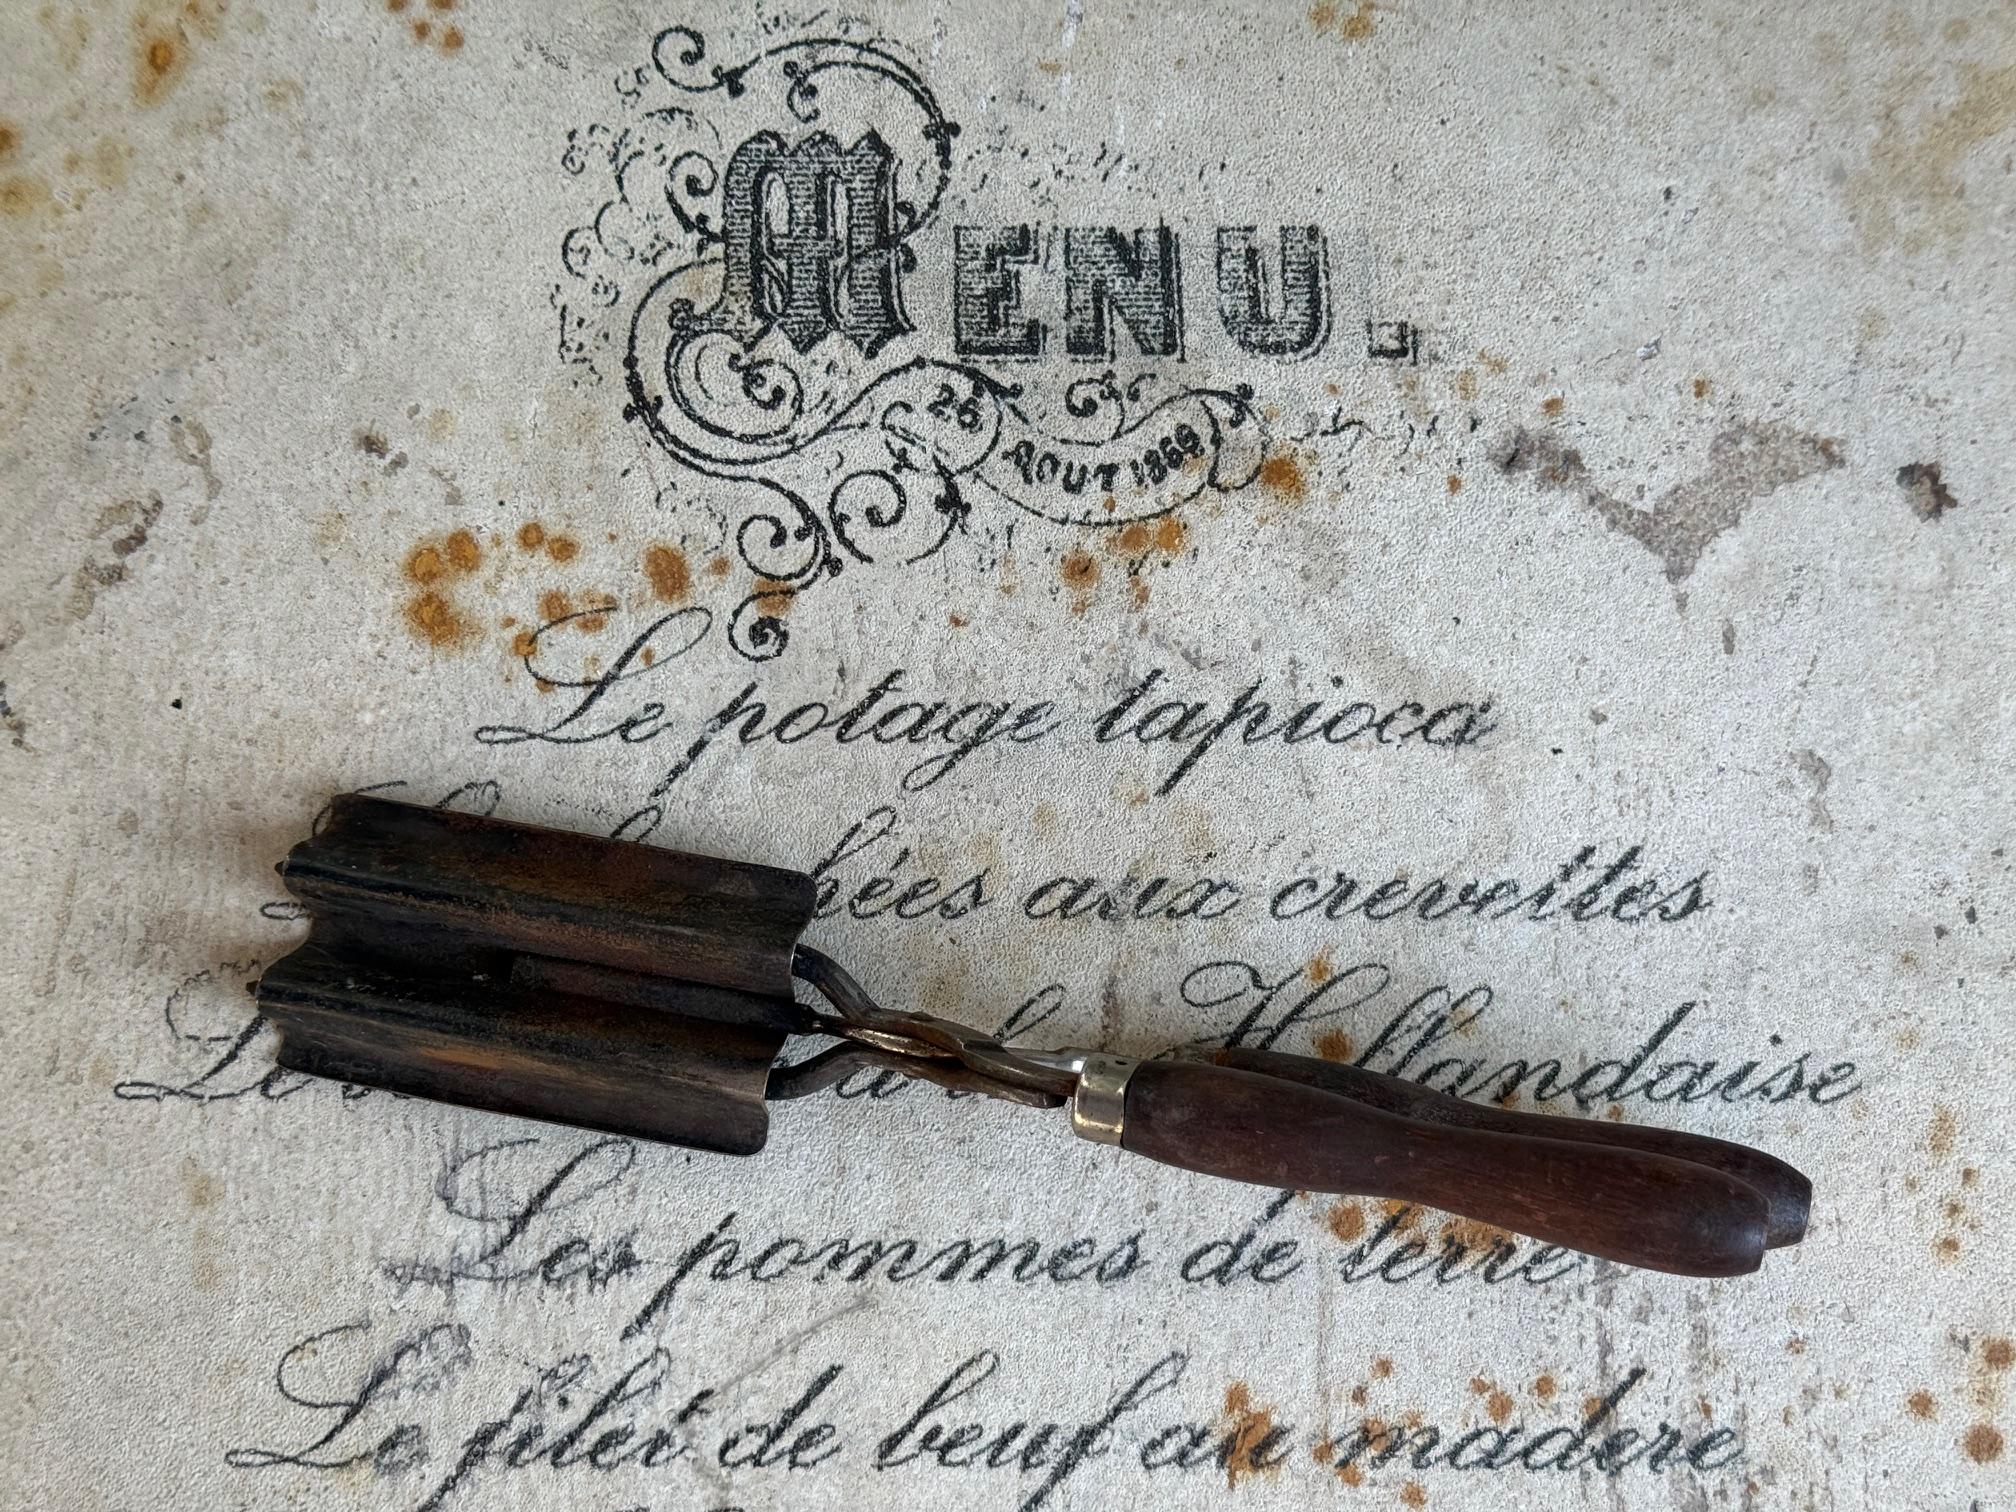 MENU.
26 AOUT 1869
Le potage tapioca
hées aux crevettes
Le Hollandaise
Les pommes de terre
Le filet de beuf au madere